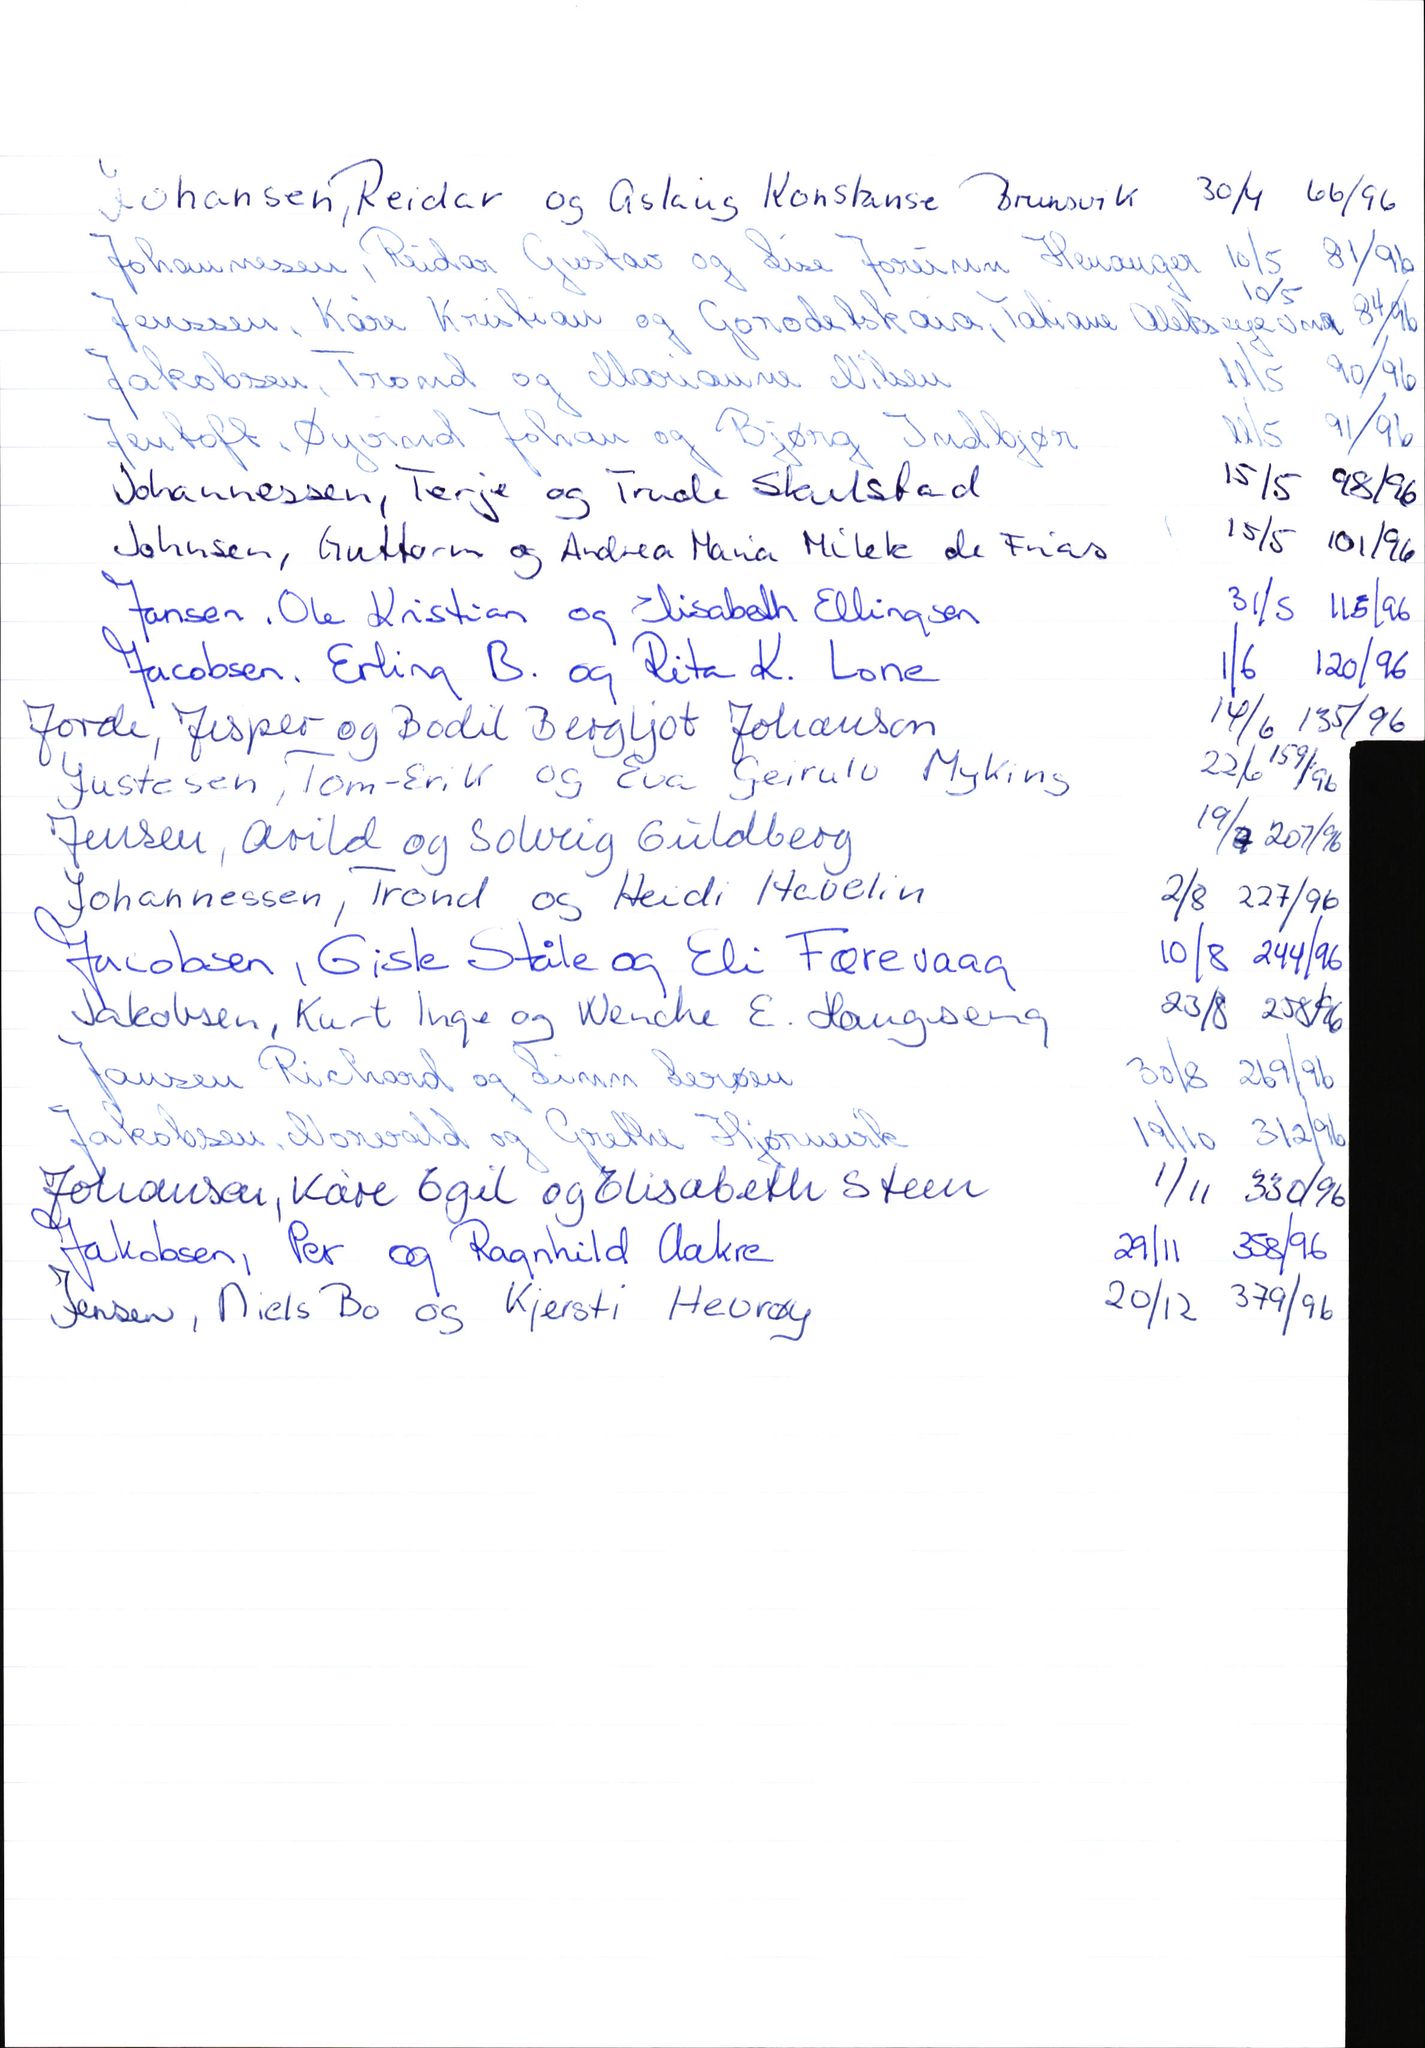 Johansen, Reidar og Aslaug Konstanse Brunsvik 30/4 66/96
Johannesen, Reidar Gustav og Lise Jorunn Henanger 10/5 81/96
Jenssen, Kåre Kristian og Gorodetskaia, Tatiane 10/5 84/96
Jakobsen, Trond og Marianne Nilsen 11/5 90/96
Jentoft, Øyvind Johan og Bjørg Indbjør 11/5 91/96
Johannessen, Terje og Trude Skulstad 15/5 98/96
Johnsen, Guttorm og Andrea Maria de Frias 15/5 101/96
Jansen, Ole Kristian og Elisabeth Ellingsen 31/5 115/96
Jacobsen. Erling B. og Rita K. Lone 1/6 120/96
Jorde, Jesper og Bodil Bergljot Johanson 14/6 135/96
Justesen, Tom-Erik og Eva Geirulv Myking 22/6 159/96
Jensen, Arild og Solveig Guldberg 19/7 207/96
Johannessen, Trond og Heidi Havelin 2/8 227/96
Jacobsen, Giske Ståle og Eli Færevaag 10/8 244/96
Jakobsen, Kurt Inge og Wenche E. Haugseng 23/8 258/96
Jansen Richard og Linn Lerøen 30/8 269/96
Jakobsen, Norvald og Grethe Hjørnevik 19/10 312/96
Johansen, Kåre Egil og Elisabeth Steen 1/11 330/96
Jakobsen, Per og Ragnhild Aakre 29/11 358/96
Jensen, Niels Bo og Kjersti Hevrøy 20/12 379/96